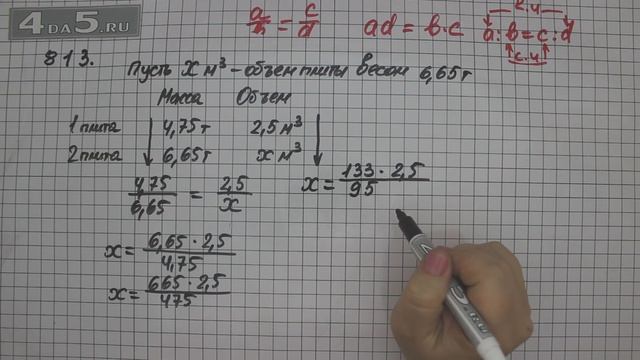 4DA5.RU
a/b = c/d ad = b·c a:b=c:d
с.ч
813. Пусть x м³ – объем плиты весом 6,65 т
Масса Объем
1 плита 4,75 т 2,5 м³
2 плита 6,65 т x м³
4,75/6,65 = 2,5/x x = 133·2,5/95
x = 6,65·2,5/4,75
x = 665·2,5/475